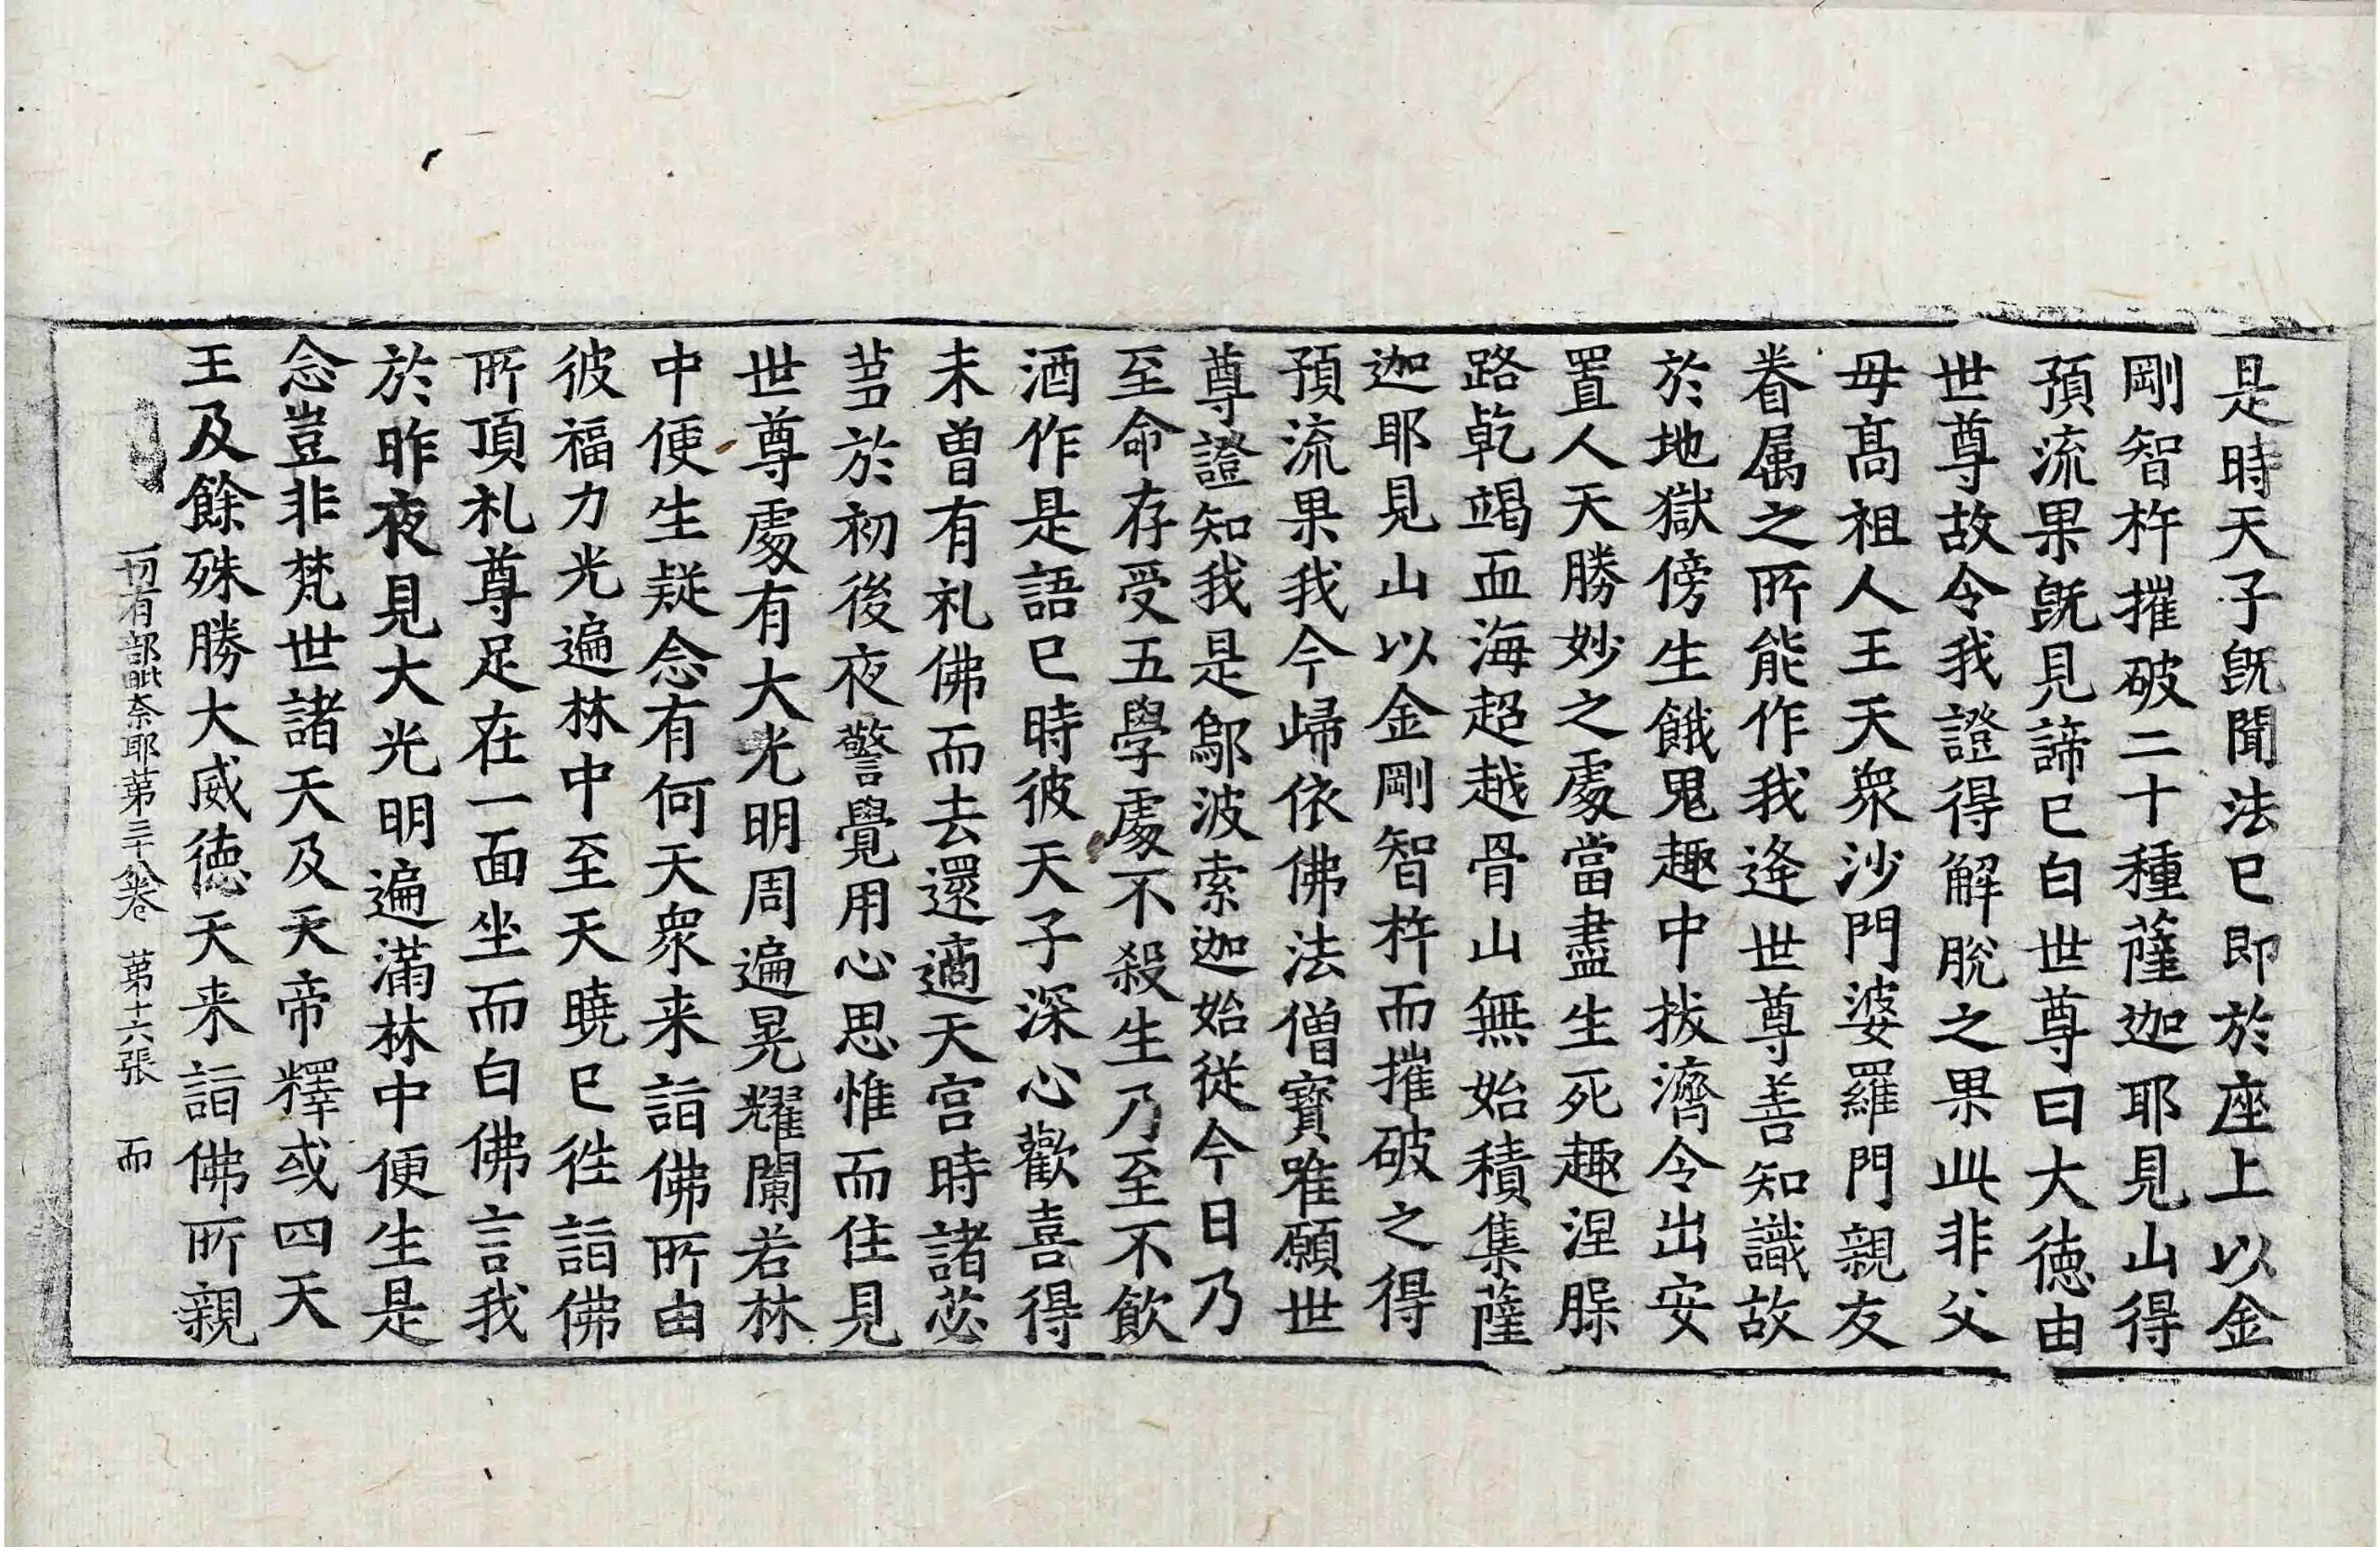 是時天子旣聞法已即於座上以金
剛智杵摧破二十種薩迦耶見山得
預流果旣見諦已白世尊曰大徳由
世尊故令我證得解脫之果此非父
母高祖人王天衆沙門婆羅門親友
眷属之所能作我逄世尊善知識故
於地獄傍生餓鬼趣中拔濟令出安
置人天勝妙之處當盡生死趣涅槃
路乾竭血海超越骨山無始積集薩
迦耶見山以金剛智杵而摧破之得
預流果我今歸依佛法僧寶唯願世
尊證知我是鄔波索迦始從今日乃
至命存受五學處不殺生乃至不飲
酒作是語已時彼天子深心歡喜得
未曽有礼佛而去還適天宮時諸苾
芻於初後夜警覺用心思惟而住見
世尊處有大光明周遍晃耀闌若林
中便生疑念有何天衆来詣佛所由
彼福力光遍林中至天曉已徃詣佛
所頂礼尊足在一面坐而白佛言我
於昨夜見大光明遍滿林中便生是
念豈非梵世諸天及天帝釋或四天
王及餘殊勝大威徳天来詣佛所親
一切有部毗奈耶第三十八卷 第十六張 而